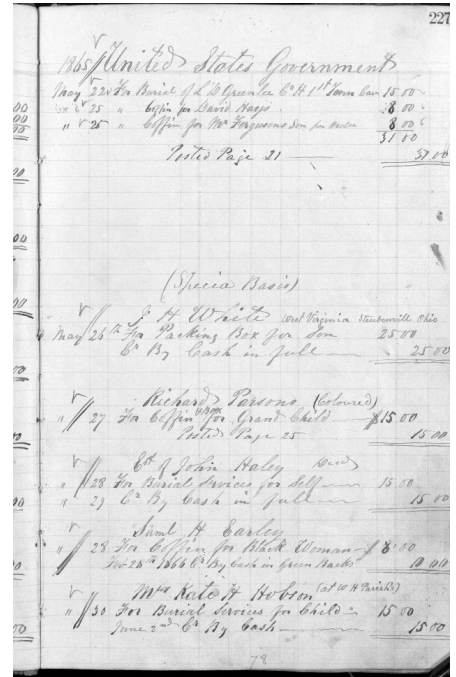 227
1865 United States Government
May 22 For Burial of L. D. Greenlee Co H 1st Tenn Cav 15.00
" 25 " Coffin for David Hays 8 00
" " 25 " Coffin for Mr Fergusons Son per Order 8 00
31 00
Posted Page 21 31 00
(Specia Basis)
J H White West Virginia Steubenvill Ohio
May 26th For Packing Box for Son 25 00
Cr By Cash in full 25 00
Richard Parsons (Coloured)
" 27 For Coffin & Box for Grand Child $15 00
Posted Page 25 15 00
Est of John Haley Decd
" 28 For Burial Services for Self 15 00
" 29 Cr By Cash in full 15 00
Saml H Earley
" 28 For Coffin for Black Woman $ 8 00
28th 1866 Cr By Cash in Green Backs 10 00
Mrs Kate H Hobson (at W H Parish's)
" 30 For Burial Services for Child 15 00
June 2nd Cr By Cash 15 00
78